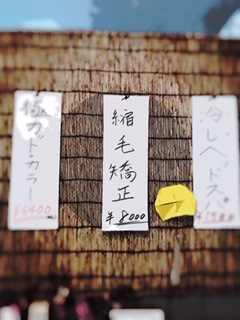 極カット・カラー
¥5400
縮毛矯正
¥8000
冷しヘッドスパ
¥1500